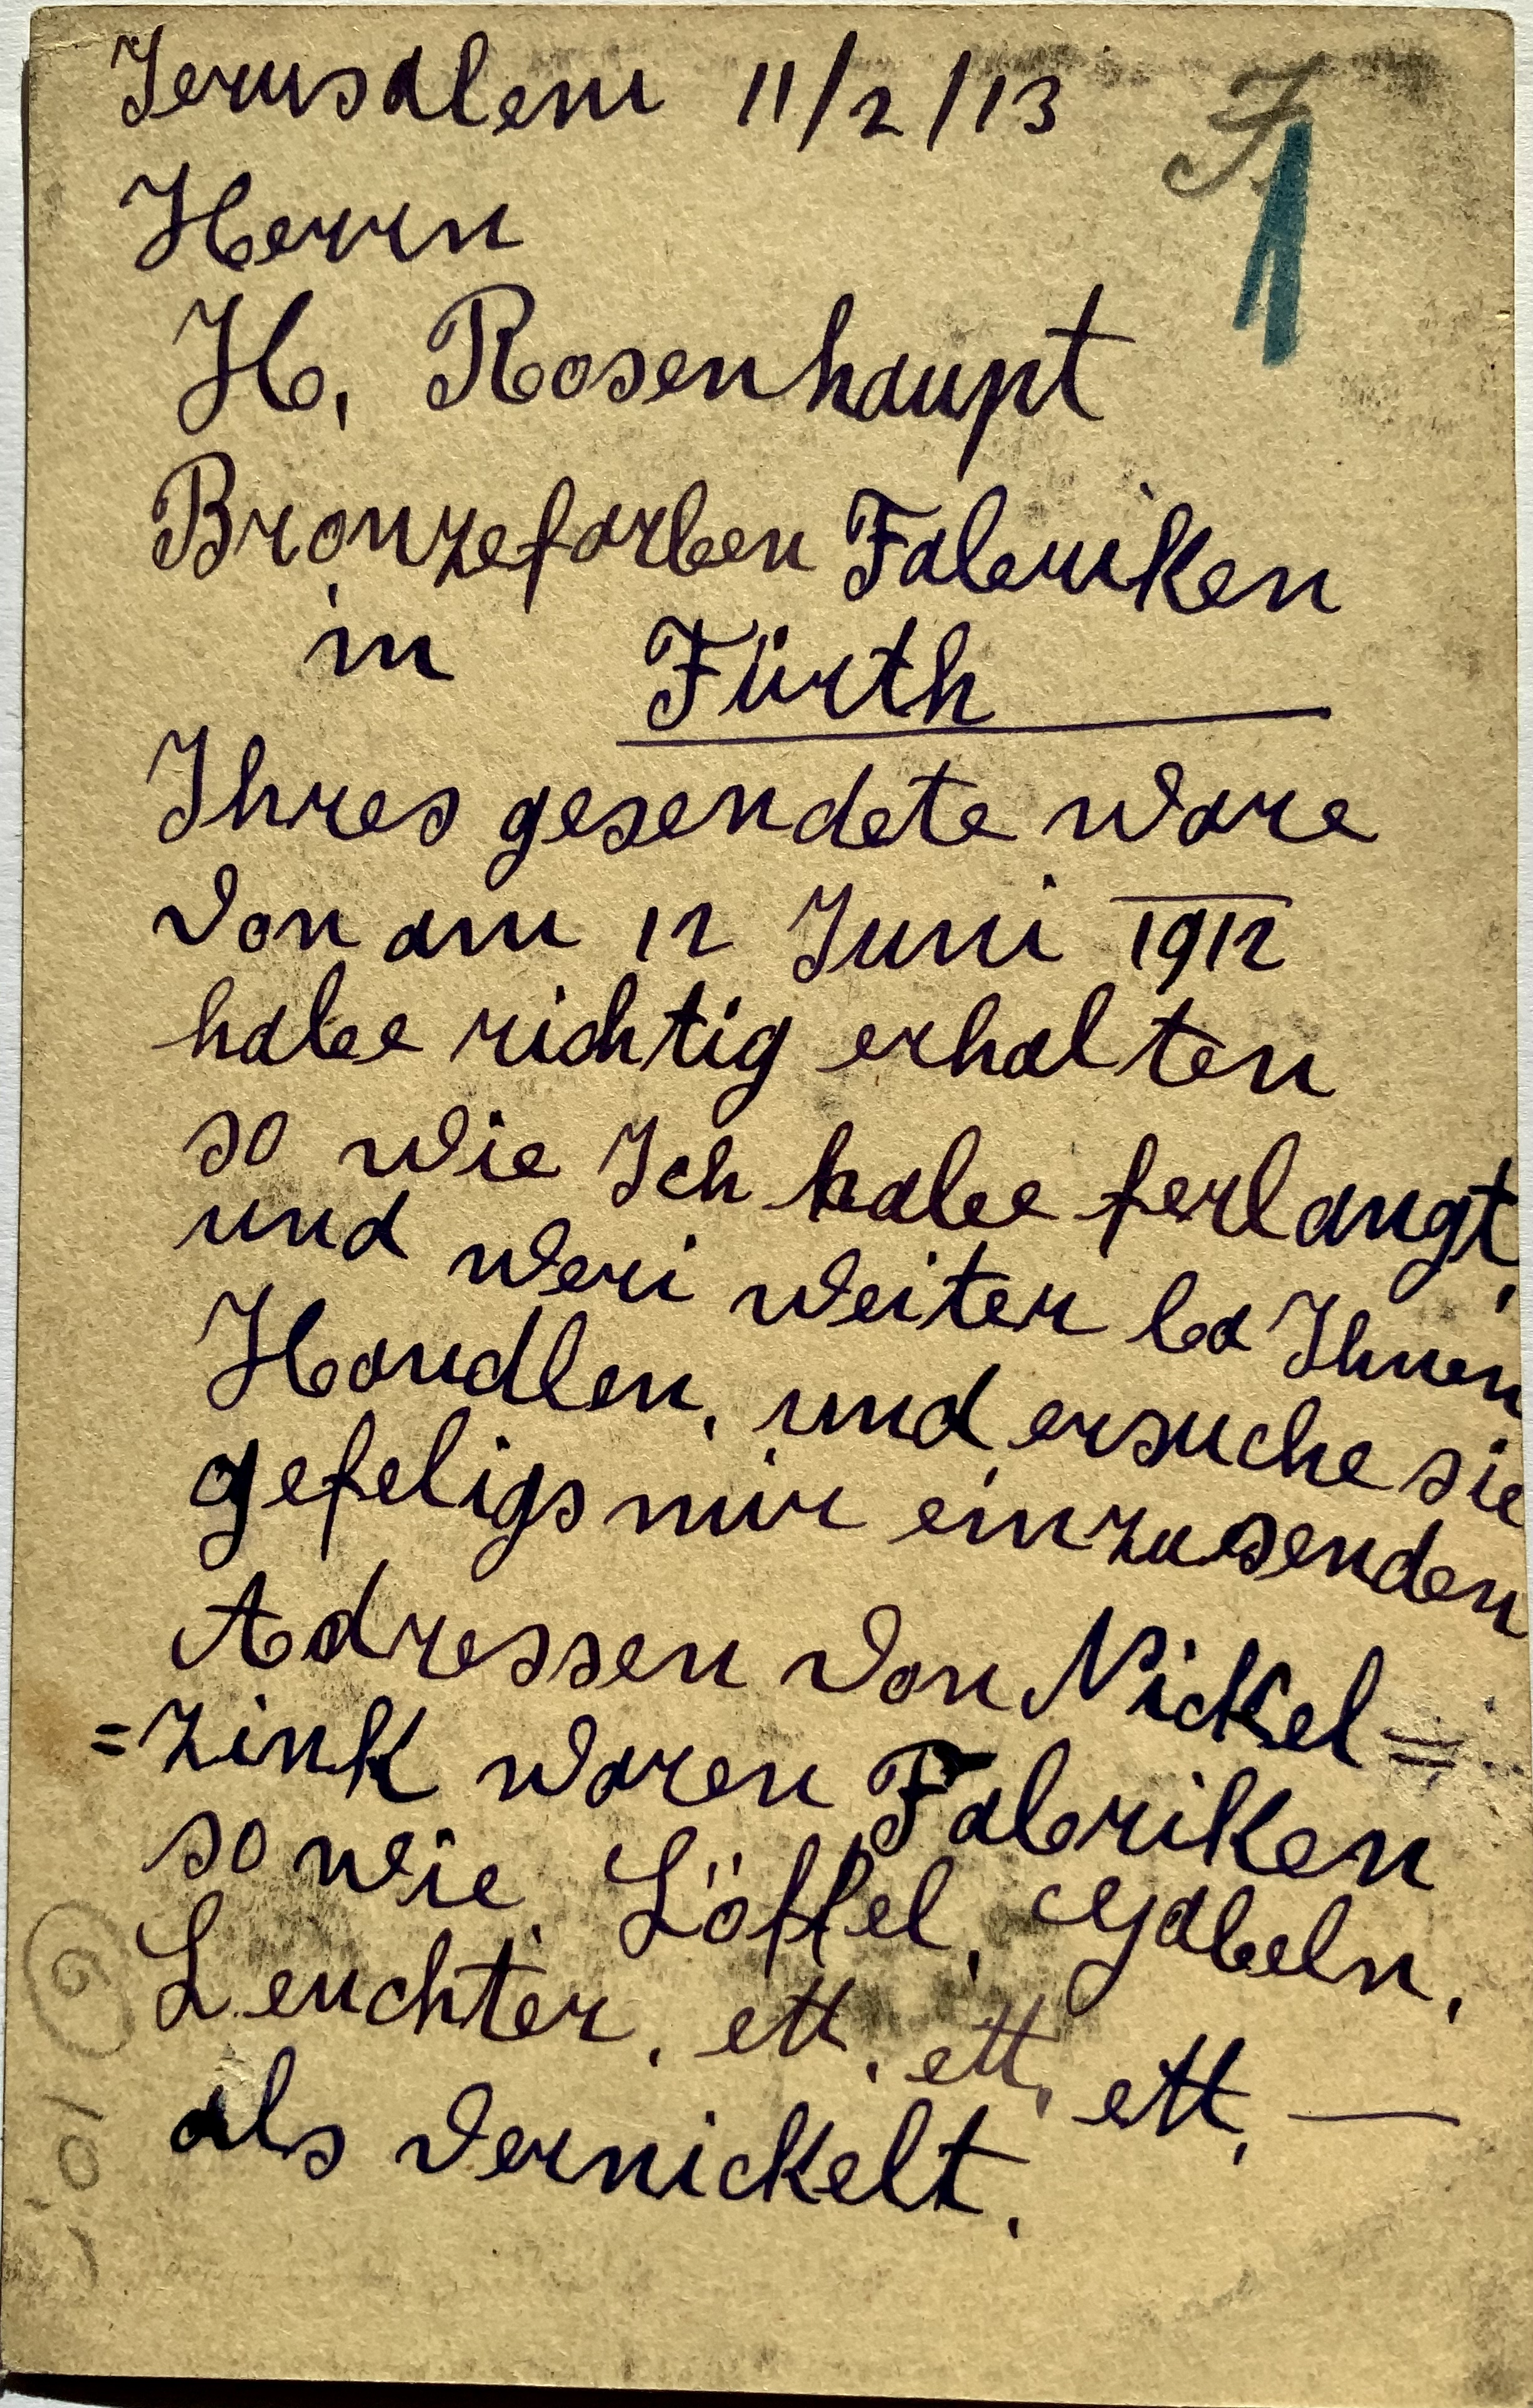 Jerusalem 11/2/13
F.
Herrn
H. Rosenhaupt
Bronzefarben Fabriken
in Fürth
Ihres gesendete ware
von am 12 Juni 1912
habe richtig erhalten
so wie Ich habe ferlangt,
und weri weiter ba Ihnen
Handlen, und ersuche sie
gefeligs mir einzusenden
Adressen von Nickel=
=zink waren Fabriken
so wie Löffel, Gabeln,
Leuchter, ett, ett, ett, —
als vernickelt.